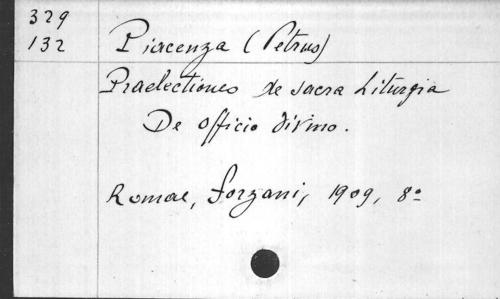 329
132 Piacenza (Petrus)
Praelectiones de sacra Liturgia
De officio divino.
Romae, Forzani, 1909, 8º